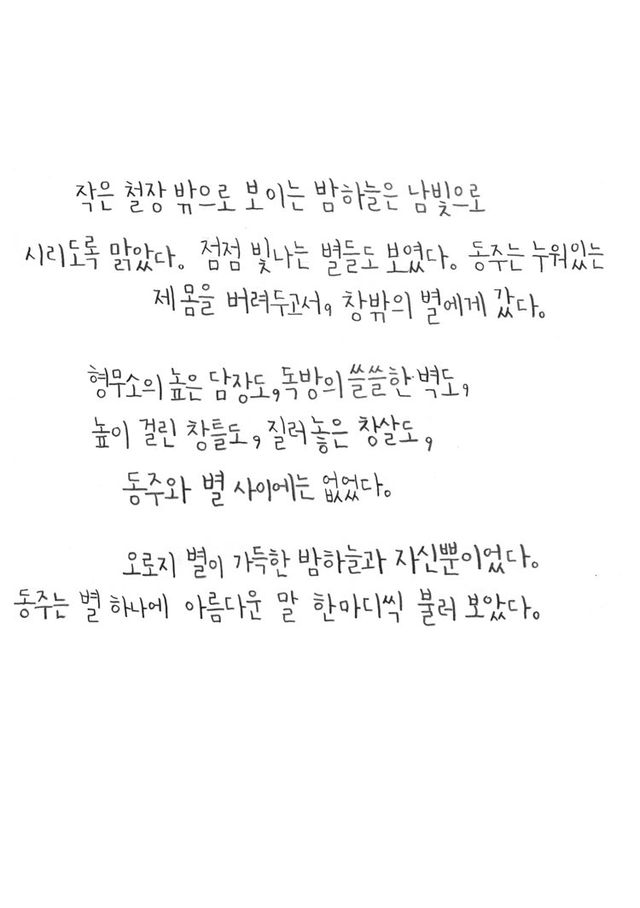 작은 철장 밖으로 보이는 밤하늘은 남빛으로
시리도록 맑았다. 점점 빛나는 별들도 보였다. 동주는 누워있는
제 몸을 버려두고서, 창밖의 별에게 갔다.
형무소의 높은 담장도, 독방의 쓸쓸한 벽도,
높이 걸린 창틀도, 질러 놓은 창살도,
동주와 별 사이에는 없었다.
오로지 별이 가득한 밤하늘과 자신뿐이었다.
동주는 별 하나에 아름다운 말 한마디씩 불러 보았다.